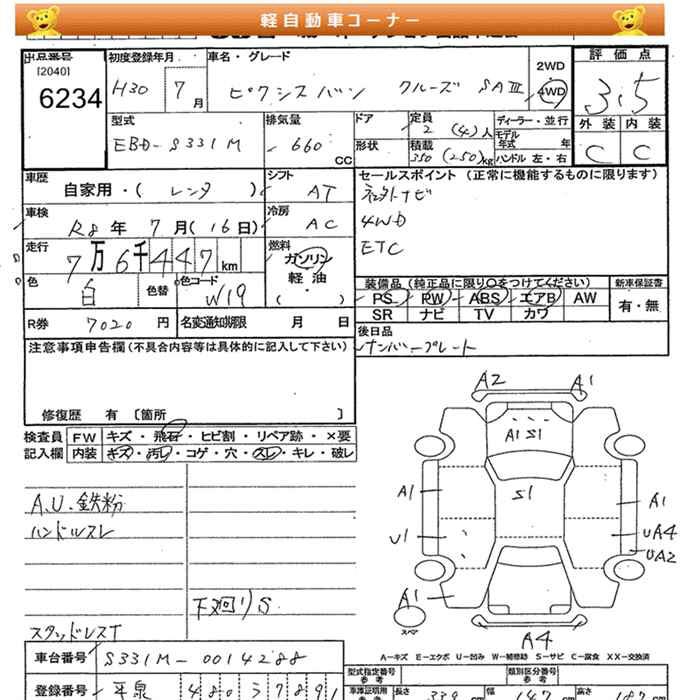 軽自動車コーナー
出品番号 初度登録年月 車名・グレード 2WD 評価点
[2040] 6234 H30 7月 ピクシスバン クルーズ SAⅢ 4WD 3.5
型式 排気量 ドア 定員 2 (4)人 ディーラー・並行 外装 内装
EBD-S331M 660 CC 形状 積載 350 (250)kg モデル年式 年 ハンドル 左・右 C C
車歴 シフト セールスポイント (正常に機能するものに限ります)
自家用・( レンタ ) AT 社外ナビ
車検 冷房 4WD
R8年 7月(16日) AC ETC
走行 燃料
7万6千447km ガソリン
色 色替 色コード 軽油 装備品 (純正品に限り○をつけてください) 新車保証書
白 W19 ( ・ ) PS PW ABS エアB AW 有・無
R券 7020円 名変通知期限 月 日 SR ナビ TV カワ
注意事項申告欄(不具合内容等は具体的に記入して下さい) 後日品
ナンバープレート
修復歴 有 〔箇所 〕
検査員 FW キズ・飛石・ヒビ割・リペア跡・×要
記入欄 内装 キズ・汚レ・コゲ・穴・スレ・キレ・破レ
A2 A1
A1 S1
A1 S1 A1
U1 UA4
UA2
A1
A4
スペア
A.U.鉄粉
ハンドルスレ
下廻りS
スタッドレスT
A-キズ E-エクボ U-凹み W-補修跡 S-サビ C-腐食 XX-交換済
車台番号 S331M-0014288 型式指定番号 類別区分番号
登録番号 車庫証明用参考 長さ 339 cm 幅 147 cm 高さ